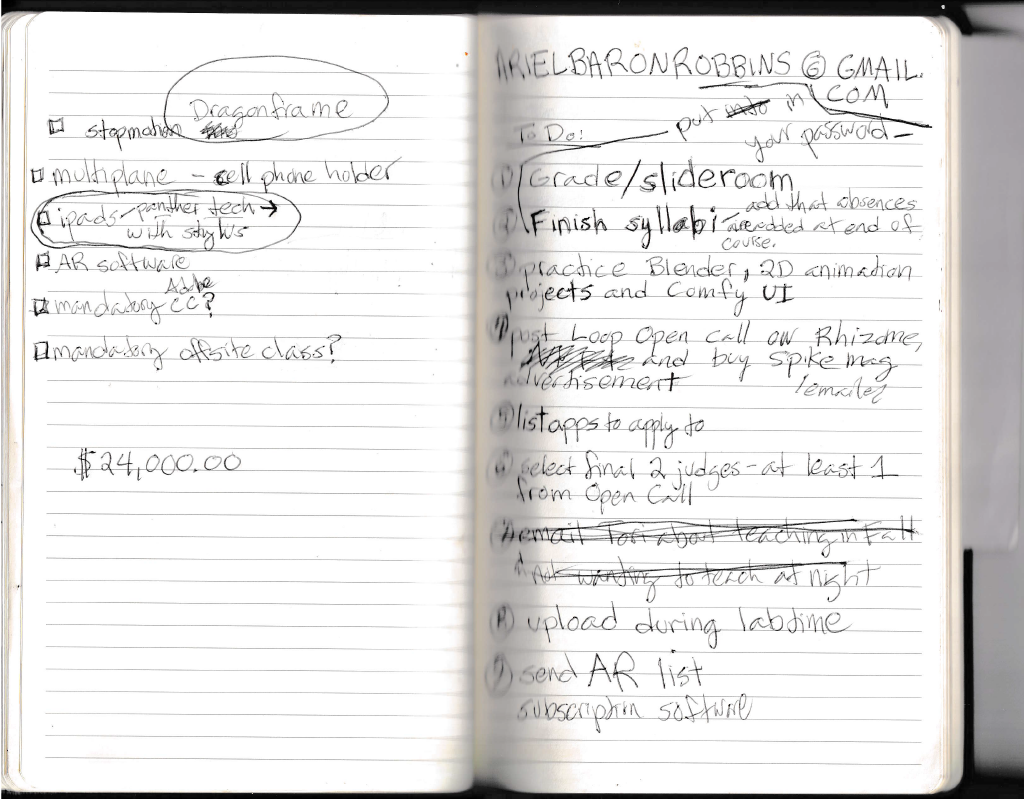 Dragonframe
stopmotion
multiplane - cell phone holder
ipads - panther tech →
with stylus
AR software
Adobe
mandatory CC?
mandatory offsite class?
$24,000.00
ARIELBARONROBBINS @ GMAIL.
COM
put in
your password -
To Do:
① Grade/slideroom
② Finish syllabi - add that absences
are added at end of
course.
③ practice Blender, 2D animation
projects and Comfy UI
④ post Loop Open call on Rhizome,
and buy Spike mag
advertisement
⑤ list apps to apply to
⑥ select final 2 judges - at least 1
from Open Call
⑦ email Tori about teaching in Fall
not wanting to teach at night
⑧ upload during labtime
⑨ send AR list
subscription software